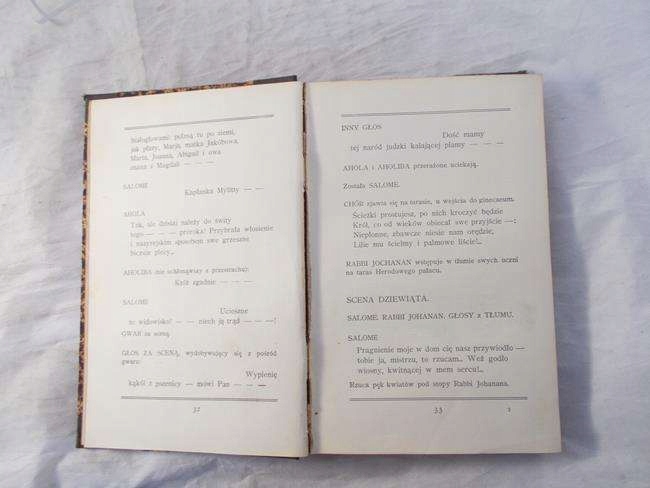 białogłowami: pełzną tu po ziemi,
jak płazy, Marja, matka Jakóbowa,
Marta, Joanna, Abigail i owa
znana z Magdali — — —
SALOME
Kapłanka Mylitty — —
AHOLA
Tak, ale dzisiaj należy do świty
tego — — — proroka! Przybrała włosienie
i nazyrejskim sposobem swe grzeszne
biczuje plecy..
AHOLIBA (nie ochłonąwszy z przestrachu):
Król zgodnie — — —
SALOME
Ucieszne
to widowisko! — — niech ją trąd — — —!
GWAR za sceną.
GŁOS ZA SCENĄ, wydobywający się z pośród
gwaru:
Wypienię
kąkol z pszenicy — mówi Pan — — —
32
INNY GŁOS
Dość mamy
tej naród judzki kalającej plamy — — —
AHOLA i AHOLIBA przerażone uciekają.
Została SALOME.
CHÓR zjawia się na tarasie, u wejścia do gineceum.
Ścieżki prostujesz, po nich kroczyć będzie
Król, co od wieków obiecał swe przyjście —:
Niepłonne, zbawcze niesie nam orędzie,
Lilie mu ścielmy i palmowe liście!..
RABBI JOCHANAN wstępuje w tłumie swych uczni
na taras Herodowego pałacu.
SCENA DZIEWIĄTA.
SALOME. RABBI JOHANAN. GŁOSY z TŁUMU.
SALOME
Pragnienie moje w dom cię nasz przywiodło —
tobie ja, mistrzu, to rzucam.. Weź godło
wiosny, kwitnącej w mem sercu!..
Rzuca pęk kwiatów pod stopy Rabbi Johanana.
33